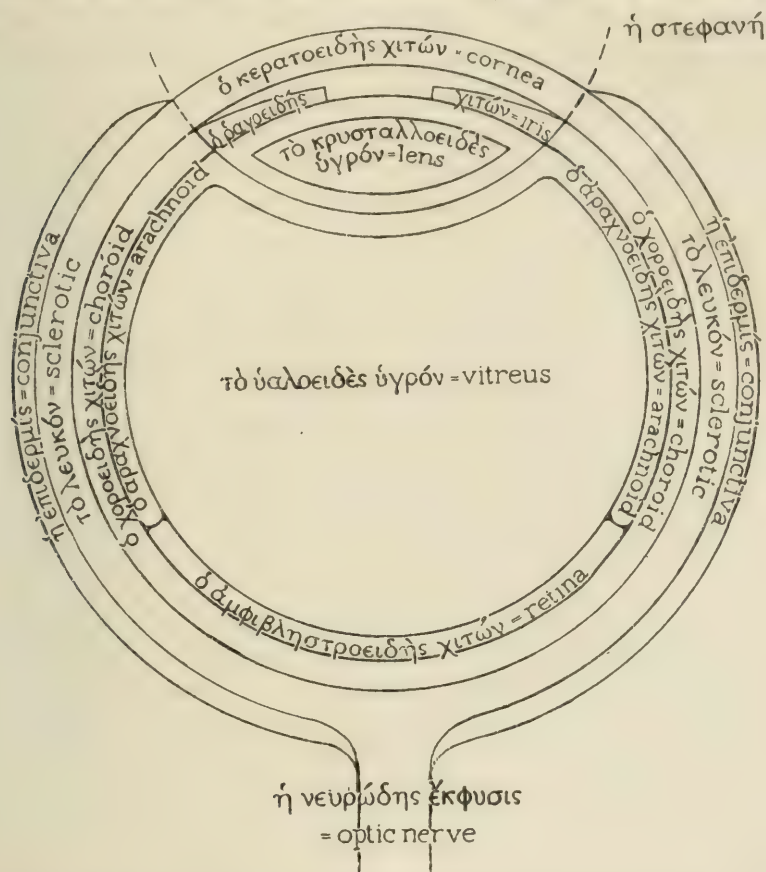 ἡ στεφανή
ὁ κερατοειδὴς χιτών = cornea
ὁ ῥαγοειδὴς
χιτών = iris
τὸ κρυσταλλοειδὲς
ὑγρόν = lens
ἡ ἐπιδερμίς = conjunctiva
τὸ λευκόν = sclerotic
ὁ χοροειδὴς χιτών = choroid
ὁ ἀραχνοειδὴς χιτών = arachnoid
ὁ ἀραχνοειδὴς χιτών = arachnoid
ὁ χοροειδὴς χιτών = choroid
τὸ λευκόν = sclerotic
ἡ ἐπιδερμίς = conjunctiva
τὸ ὑαλοειδὲς ὑγρόν = vitreus
ὁ ἀμφιβληστροειδὴς χιτών = retina
ἡ νευρώδης ἔκφυσις
= optic nerve